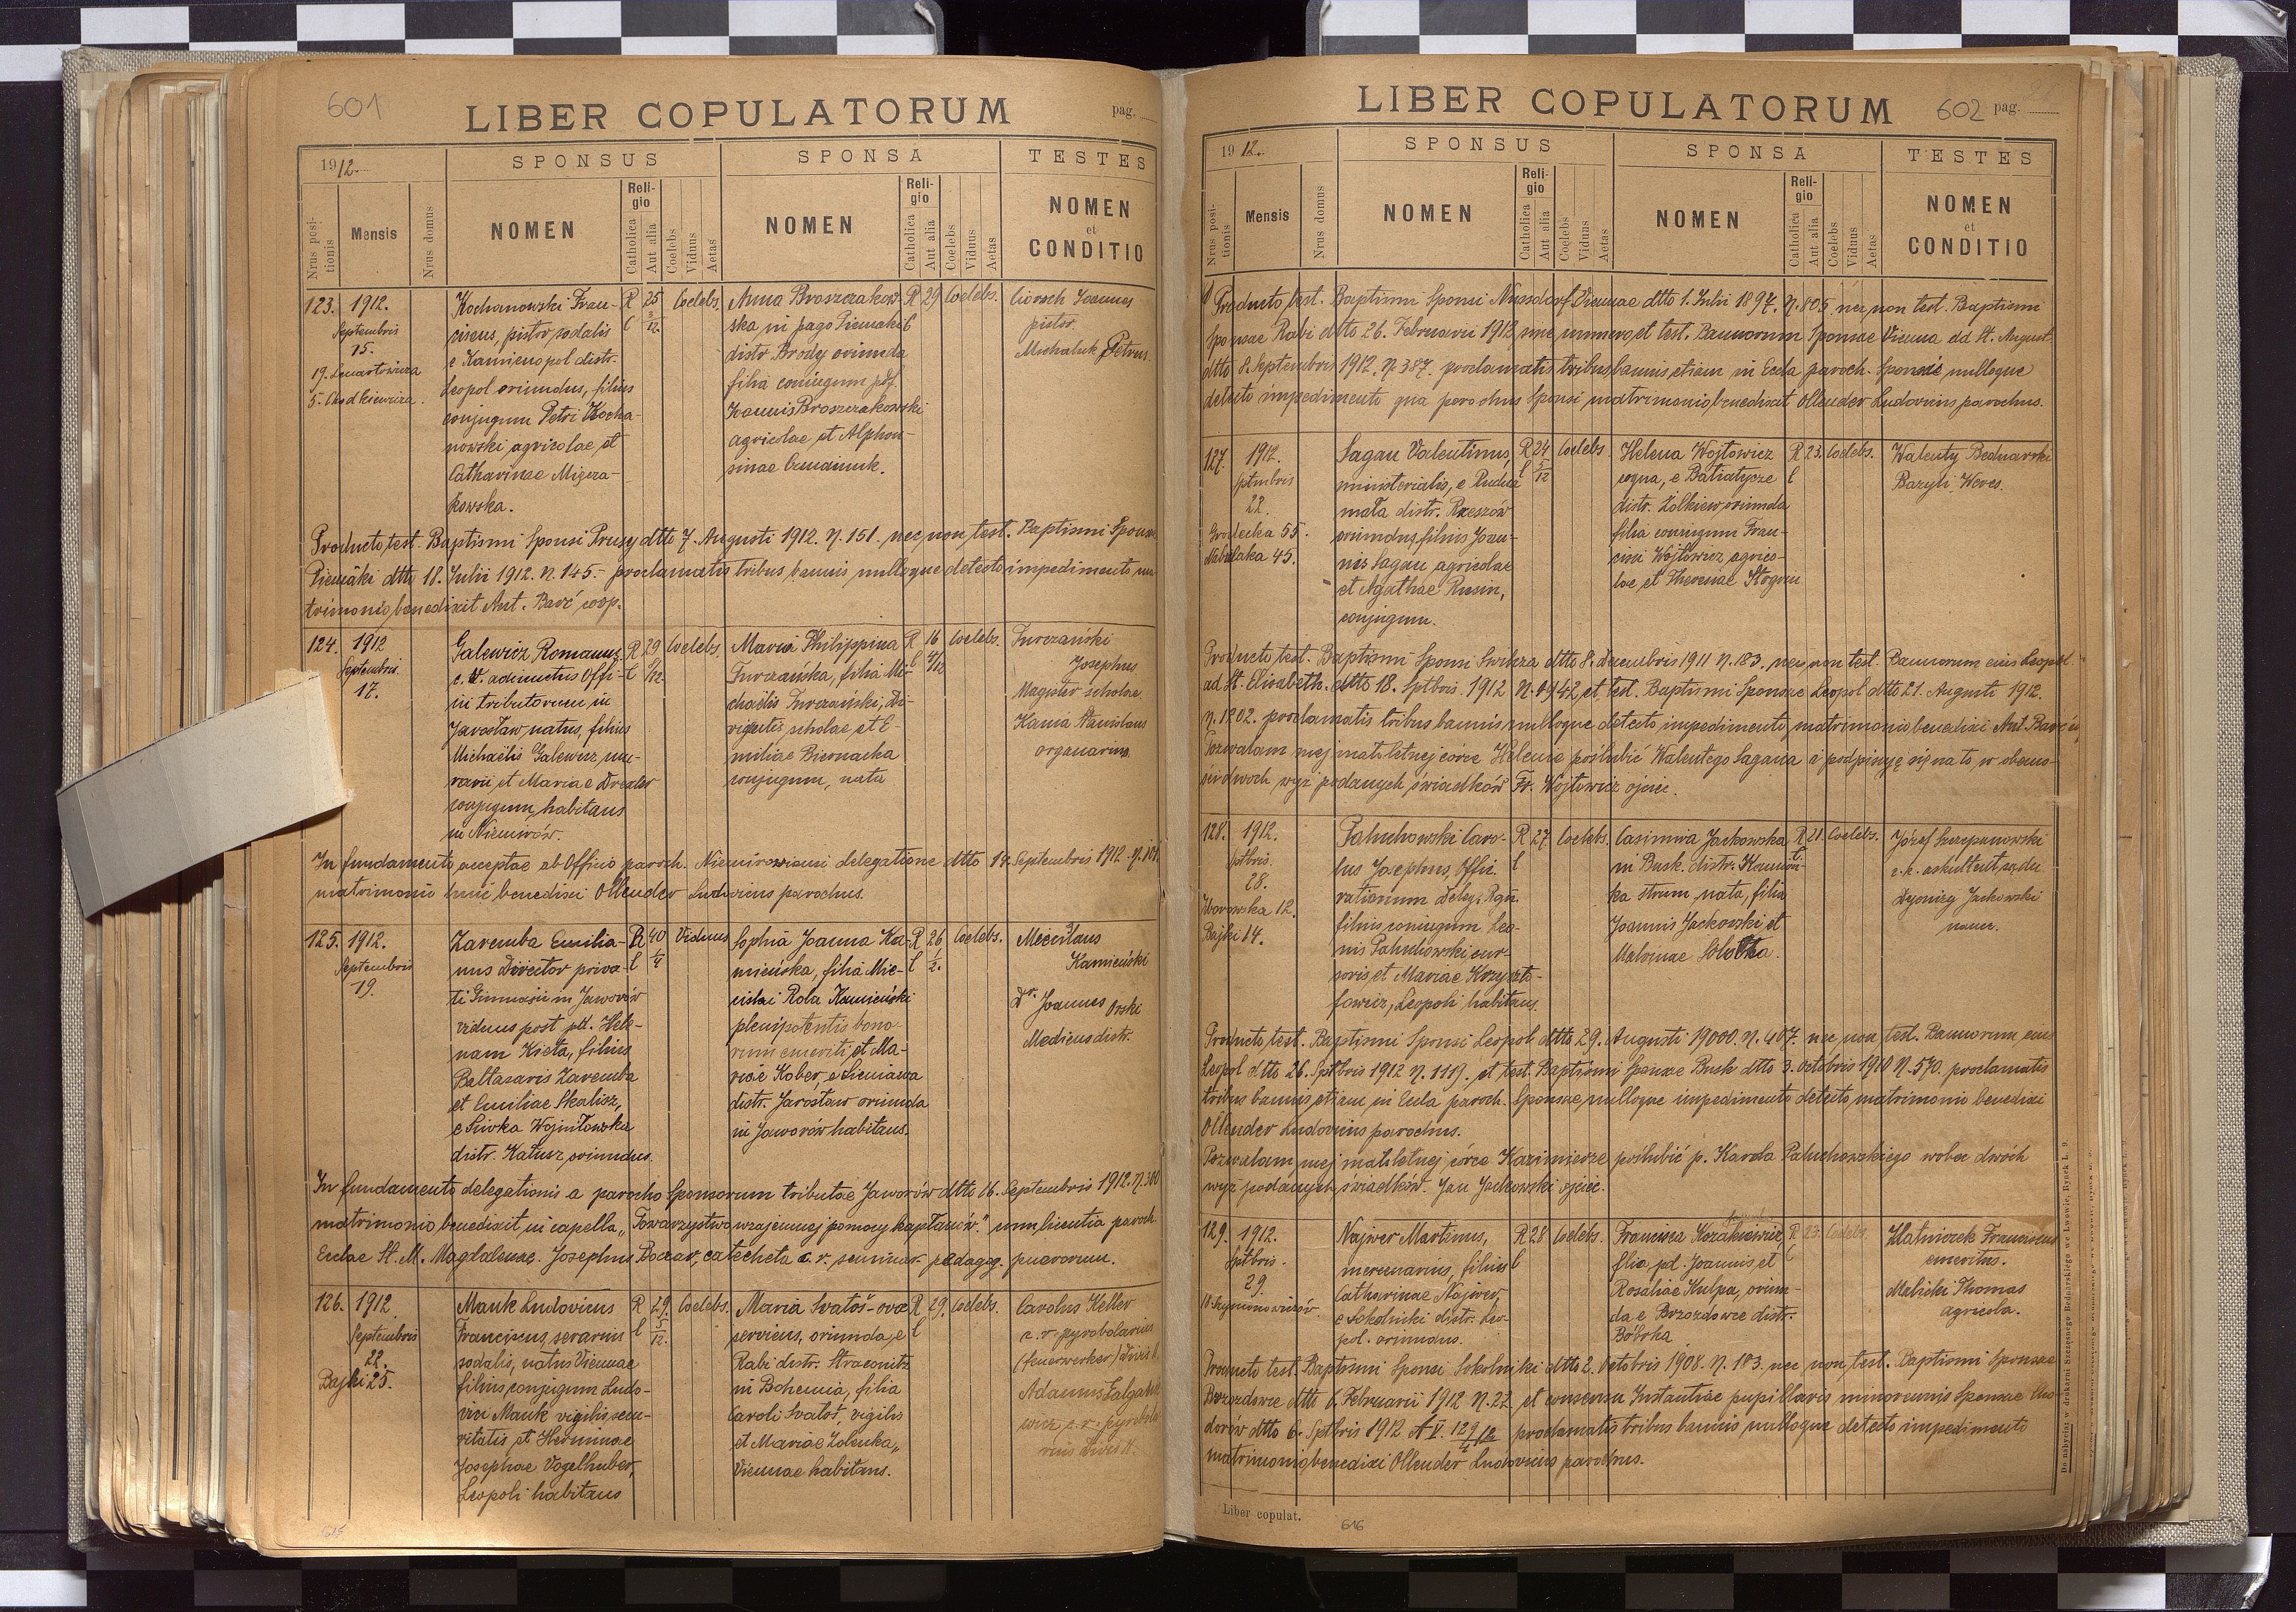 601
LIBER COPULATORUM
pag.
1912.
SPONSUS
SPONSA
TESTES
Nrus positionis
Mensis
Nrus domus
NOMEN
Religio
Catholica
Aut alia
Coelebs
Viduus
Aetas
NOMEN
Religio
Catholica
Aut alia
Coelebs
Viduus
Aetas
NOMEN
et
CONDITIO
123. 1912.
Septembris
15.
19. Lenartowicza
5. Chodkiewicza.
Kochanowski Fran-
ciscus, pistor sodalis
e Kamienopol distr.
Leopol oriundus, filius
conjugum Petri Kocha-
nowski agricolae et
Catharinae Migera-
kowska.
R 25 Coelebs.
C 3/12.
Anna Broszczakow-
ska in pago Pieniaki
distr. Brody oriunda
filia coniugum pdf.
Joannis Broszczakowski
agricolae et Alphon-
sinae
R 29 Coelebs.
C
Joannes
pistor.
Michaluk Petrus.
Producto test. Baptismi Sponsi Prusy dtto 7. Augusti 1912. N. 151. nec non test. Baptismi Sponsae
Pieniaki dtto 18. Julii 1912. N. 145. proclamatis tribus bannis nulloque detecto impedimento ma-
trimonio benedixit Ant. Barć coop.
124. 1912
Septembris
17.
Galewicz Romanus,
c. r. adiunctus Offi-
cii tributorum in
Jarosław, natus, filius
Michaëlis Galewicz,
et Mariae Drexler
conjugum, habitans
in Niemirów.
R 29 Coelebs.
C
Maria Philippina
Turczańska, filia Mi-
chaëlis Turczański, Di-
rigentis scholae et E-
miliae Biernacka
conjugum, nata
R 16 Coelebs.
C
Turczański
Josephus
Magister scholae
Kania Stanislaus
organarius.
In fundamento acceptae ab Officio paroch. Niemiroviensi delegatione dtto 14. Septembris 1912. N.
matrimonio huic benedixi Ollender Ludovicus parochus.
125. 1912.
Septembris
19.
Zaremba Emilia-
nus Director priva-
ti Gimnasii in Jaworów
viduus post pd. Hele-
nam Kieta, filius
Baltasaris Zaremba
et Emiliae Skalisz,
e Siwka Wojniłowska
distr. Kałusz, oriundus.
R 40 Viduus
C 1/4
Sophia Joanna Ka-
mieńska, filia Mie-
cislai Rola Kamieński
plenipotentis bono-
rum emeriti et Ma-
riae Kober, e Sieniawa
distr. Jarosław oriunda
in Jaworów habitans.
R 26 Coelebs.
C 1/2.
Mecislaus
Kamieński
Dr. Joannes Orski
Medicus distr.
In fundamento delegationis a parocho Sponsorum tributae Jaworów dtto 16. Septembris 1912. N. 300
matrimonio benedixit in capella „Towarzystwo wzajemnej pomocy kapłanów." cum licentia paroch.
Eclae St. M. Magdalenae. Josephus Boczar, catecheta c. r. seminar. pedagog. puerorum.
126. 1912.
Septembris
22.
Bajki 25.
Mauk Ludovicus
Franciscus, serarius
sodalis, natus Viennae
filius conjugum Ludo-
vici Mauk vigilis secu-
ritatis et Herminae
Josephae Vogelhuber,
Leopoli habitans
R 29. Coelebs.
C 5/12.
Maria Svatoš-ova
serviens, oriunda, e
Rabi distr. Straconitz
in Bohemia, filia
Caroli Svatoš, vigilis
et Mariae Zolenka,
Viennae habitans.
R 29. Coelebs.
C
Carolus Keller
c. r. pyrobolarius
(feuerwerker)
Adamus
602 pag.
LIBER COPULATORUM
1912.
SPONSUS
SPONSA
TESTES
Nrus positionis
Mensis
Nrus domus
NOMEN
Religio
Catholica
Aut alia
Coelebs
Viduus
Aetas
NOMEN
Religio
Catholica
Aut alia
Coelebs
Viduus
Aetas
NOMEN
et
CONDITIO
Producto test. Baptismi Sponsi Nussdorf Viennae dtto 1. Julii 1897. N. 805 nec non test. Baptismi
Sponsae Rabi dtto 26. Februarii 1912 sine numero, et test. Bannorum Sponsae Vienna ad St. August.
dtto 8. Septembris 1912. N. 387. proclamatis tribus bannis etiam in Eccla paroch. Sponsae nulloque
detecto impedimento qua parochus Sponsi matrimonio benedixit Ollender Ludovicus parochus.
127. 1912.
Sptmbris
22.
Grodecka 55.
45.
Sagan Valentinus,
ministerialis, e Rudna
mała distr. Rzeszów
oriundus, filius Joan-
nis Sagan agricolae
et Agathae Rusin,
conjugum.
R 24 Coelebs.
C 5/12
Helena Wojtowicz
coqua, e Batiatycze
distr. Żółkiew, oriunda
filia coniugum Fran-
cisci Wojtowicz, agrico-
lae, et Theresae Stogrin
R 23. Coelebs.
C
Walenty Bednarski
Bazyli Weres.
Producto test. Baptismi Sponsi Świlcza dtto 8. Decembris 1911 N. 183. nec non test. Bannorum eius Leopol
ad St. Elisabeth. dtto 18. Sptbris. 1912 N. 4942, et test. Baptismi Sponsae Leopol dtto 21. Augusti 1912.
N. 1802. proclamatis tribus bannis nulloque detecto impedimento, matrimonio benedixi Ant. Barć
Pozwalam mej małoletniej córce Helenie poślubić Walentego Sagana i podpisuję się na to w obecno-
ści dwóch wyż podanych świadków Fr. Wójtowicz ojciec.
128. 1912.
Sptbris.
28.
Worowska 12.
Bajki 14.
Pałuchowski Caro-
lus Josephus, Offic.
rationum Deleg. Rgn.
filius coniugum Leo-
nis Pałuchowski cur-
soris, et Mariae Krzyszto-
fowicz, Leopoli habitans.
R 27 Coelebs.
C
Casimira Jackowska
in Busk. distr. Kamion-
ka strum. nata, filia
Joannis Jackowski et
Malvinae
R 21. Coelebs.
C
Józef Szczepanowski
c. k. askultent sądu
Dyonizy Jackowski
naucz.
Producto test. Baptismi Sponsi Leopol dtto 29. Augusti 19000. N. 407. nec non test. Bannorum eius
Leopol dtto 26. Sptbris 1912 N. 1119. et test. Baptismi Sponsae Busk dtto 3. Octobris 1910 N. 570. proclamatis
tribus bannis, etiam in Eccla paroch. Sponsae, nulloque impedimento detecto, matrimonio benedixi
Ollender Ludovicus parochus.
Pozwalam mej małoletniej córce Kazimierze poślubić p. Karola Pałuchowskiego wobec dwóch
wyż podanych świadków. Jan Jackowski ojciec.
129. 1912.
Sptbris.
29.
Szymonowiczów
Najwer Martinus,
mercenarius, filius
Catharinae Najwer,
e Sokolniki distr. Leo-
pol. oriundus.
R 28 Coelebs.
C
Francisca Kozakiewicz,
filia, pd. Joannis, et
Rosaliae Kulpa, oriun-
da e Brzozdowce distr.
Bóbrka
R 23. Coelebs.
C
Franciscus
emeritus.
Malicki Thomas
agricola.
Producto test. Baptismi Sponsi Sokolniki dtto 2. Octobris 1908. N. 183. nec non test. Baptismi Sponsae
Brzozdowce dtto 6. Februarii 1912 N. 22 et consensu Instantiae pupillaris minorennis Sponsae Cho-
dorów dtto 6. Sptbris 1912 A V. 129/12 proclamatis tribus bannis nulloque detecto impedimento
matrimonio benedixi Ollender Ludovicus parochus.
Liber copulat.
616